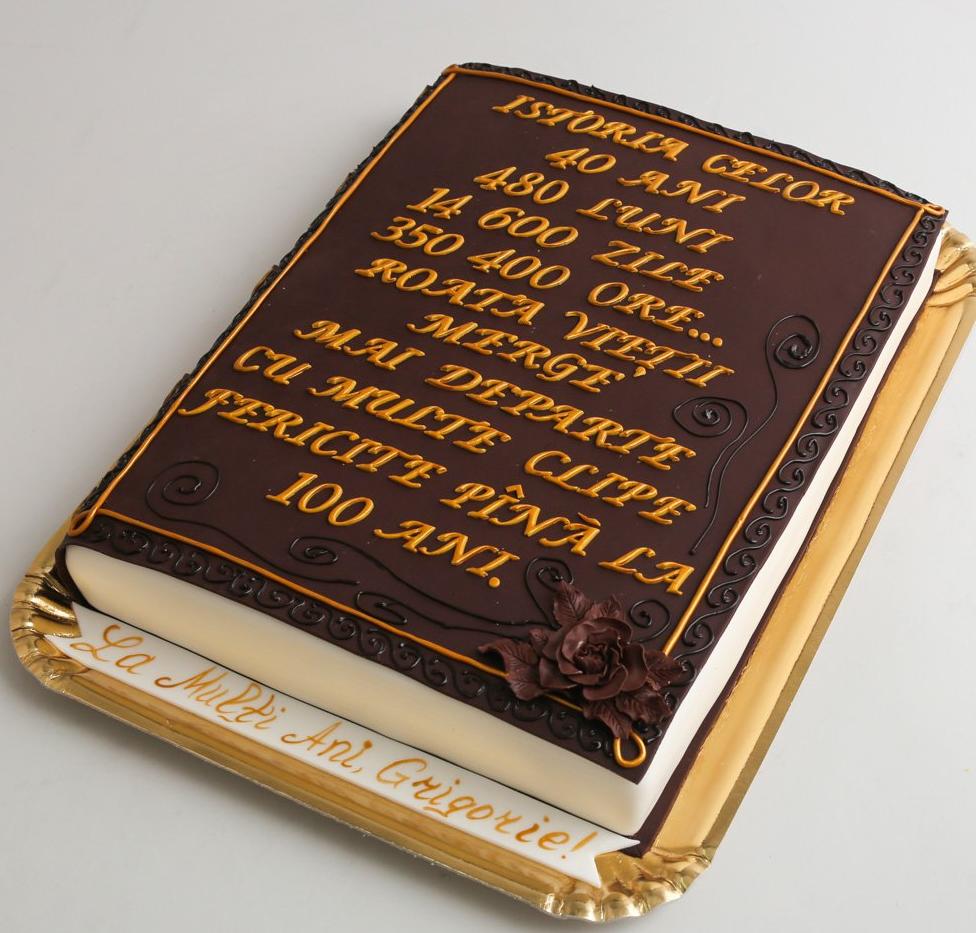 ISTORIA CELOR
40 ANI
480 LUNI
14 600 ZILE
350 400 ORE...
ROATA VIEȚII
MERGE
MAI DEPARTE
CU MULTE CLIPE
FERICITE PÎNĂ LA
100 ANI.
La Mulți Ani, Grigorie!